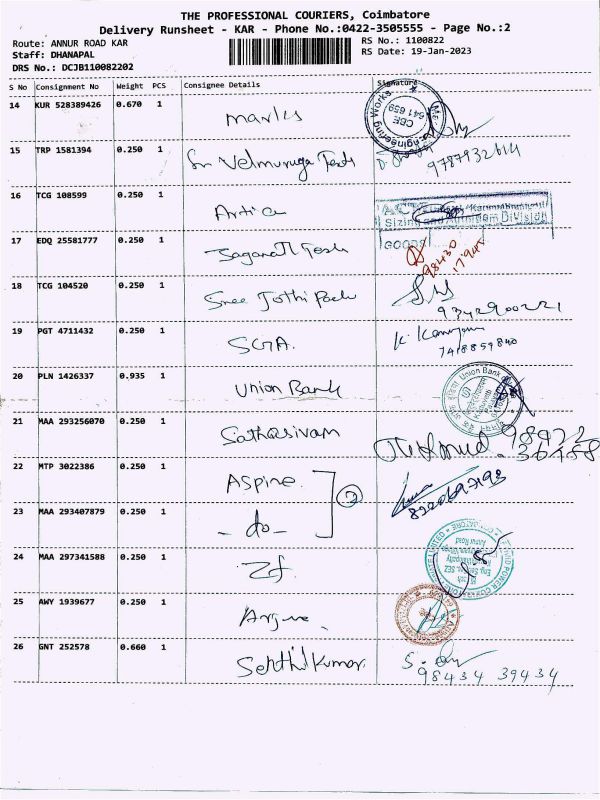 THE PROFESSIONAL COURIERS, Coimbatore
Delivery Runsheet - KAR - Phone No.:0422-3505555 - Page No.:2
Route: ANNUR ROAD KAR
Staff: DHANAPAL
DRS No.: DCJB110082202
RS No.: 1100822
RS Date: 19-Jan-2023
S No Consignment No Weight PCS Consignee Details Signature
14 KUR 528389426 0.670 1
Engineering Works CBE 641 659
15 TRP 1581394 0.250 1 Sri Velmuruga Texts 9787932614
16 TCG 108599 0.250 1 Artica
Sizing and Division
GOODS
17 EDQ 25581777 0.250 1 Jaganath 98430 17945
18 TCG 104520 0.250 1 Sree Jothi Pack 9342900221
19 PGT 4711432 0.250 1 SGA. K. 7418859840
20 PLN 1426337 0.935 1 Union Bank
Union Bank
21 MAA 293256070 0.250 1 Sathasivam 98942 36458
22 MTP 3022386 0.250 1 Aspire. 2
23 MAA 293407879 0.250 1 - do -
24 MAA 297341588 0.250 1 Zf.
Annur Road
25 AWY 1939677 0.250 1 Arjun.
26 GNT 252578 0.660 1 Senthil Kumar. 98434 39434